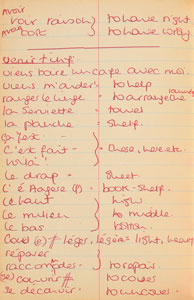 Avoir
Avoir raison } to have right
Avoir tort } to have wrong
venir + inf:
viens boire un café avec moi.
viens m'aider - to help
ranger le linge - to arrange the
la serviette - towel
la planche - shelf.
ça y est -
C'est fait -
voilà!
le drap - sheet
l'étagère (f) - book-shelf.
le haut high
le milieu to middle.
le bas bottom.
léger, légère = light, heavy
réparer
raccomoder - to repair
couvrir to cover
se découvrir - to uncover.